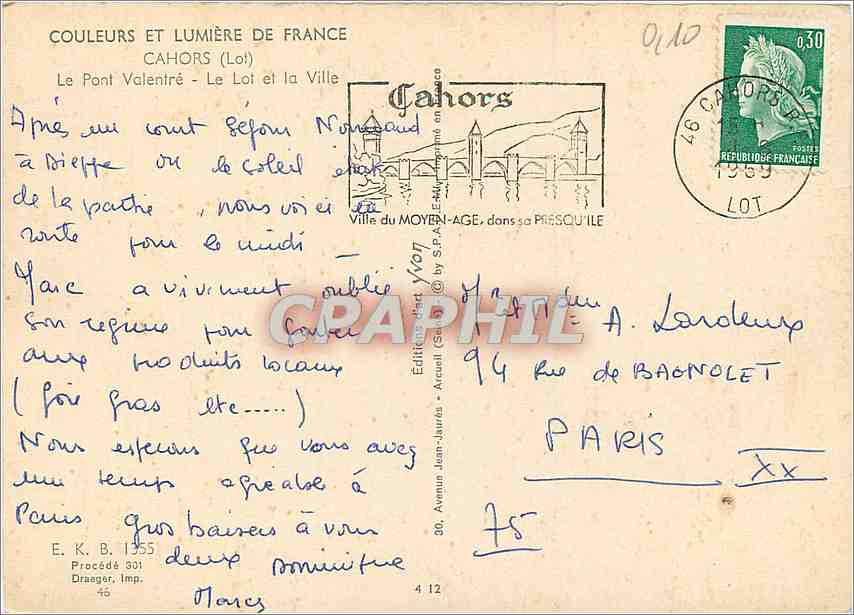 COULEURS ET LUMIÈRE DE FRANCE
CAHORS (Lot)
Le Pont Valentré - Le Lot et la Ville
0,10
0,30
POSTES
REPUBLIQUE FRANÇAISE
46 CAHORS
1969
LOT
Cahors
Ville du MOYEN-AGE, dans sa PRESQU'ILE
Après un court séjour Normand
à Dieppe où le soleil était
de la partie, nous voici en
route pour le midi
Marc a vivement oublié
son regime pour gouter
aux produits locaux
(foie gras etc.....)
Nous esperons que vous avez
un temps agréable à
Paris gros baisers à vous
deux Dominique
Marc
E. K. B. 1355
Procédé 301
Draeger, Imp.
46
4 12
Editions d'art Yvon
30, Avenue Jean-Jaurès - Arcueil (Seine) © by S.P.A.D.E.M. Imprimé en France
CPARHIL
Mr et Mme A. Lardeux
94 Rue de BAGNOLET
PARIS XX
75